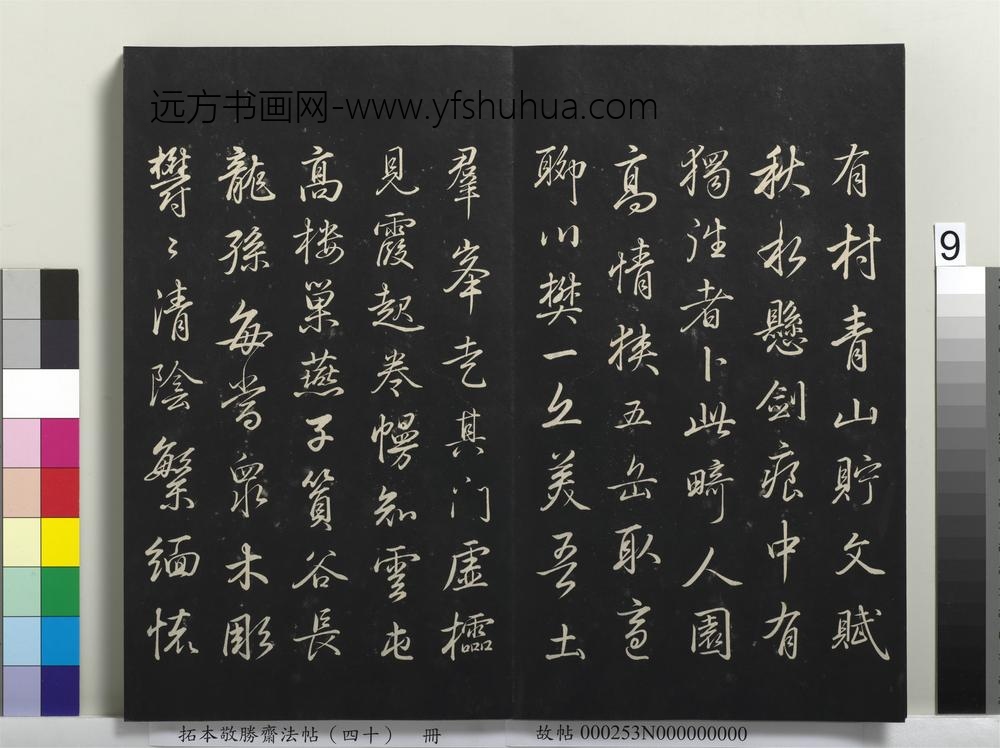 远方书画网-www.yfshuhua.com
有村青山貯文賦
秋水懸劍痕中有
獨往者卜此畸人園
高情狹五岳取適
聊以樊一丘美吾土
羣峯走其门虛櫺
見霞起卷幔知雲屯
高樓巢燕子篔谷長
龍孫每當眾木彫
欝〻清陰繁緬懷
9
拓本敬勝齋法帖（四十） 冊 故帖 000253N000000000